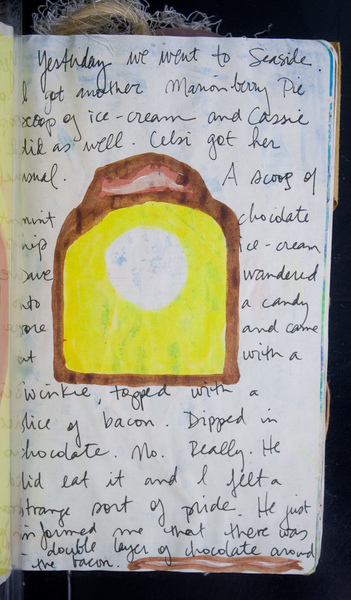 Yesterday we went to Seaside.
I got another Marionberry Pie
scoop of ice-cream and Cassie
did as well. Celsi got her
usual. A scoop of
mint chocolate
hip ice-cream
Dave wandered
nto a candy
ore and came
ut with a
Twinkie, topped with a
slice of bacon. Dipped in
chocolate. No. Really. He
did eat it and I felt a
strange sort of pride. He just
informed me that there was
double layer of chocolate around
the bacon.